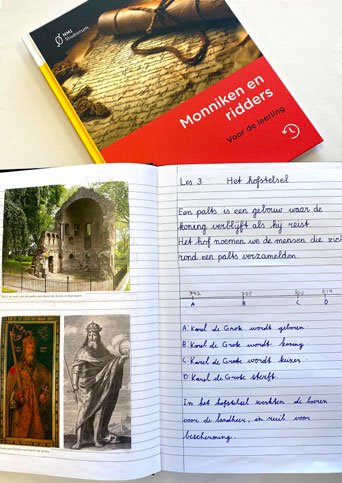 NMI
Studiorum
Monniken en
ridders
Voor de leerling
Les 3 Het hofstelsel
Een palts is een gebouw waar de
koning verblijft als hij reist.
Het hof noemen we de mensen die zich
rond een palts verzamelden.
742 768 800 814
A B C D
A: Karel de Grote wordt geboren.
B: Karel de Grote wordt koning.
C: Karel de Grote wordt keizer.
D: Karel de Grote sterft.
In het hofstelsel werkten de boeren
voor de landheer, in ruil voor
bescherming.